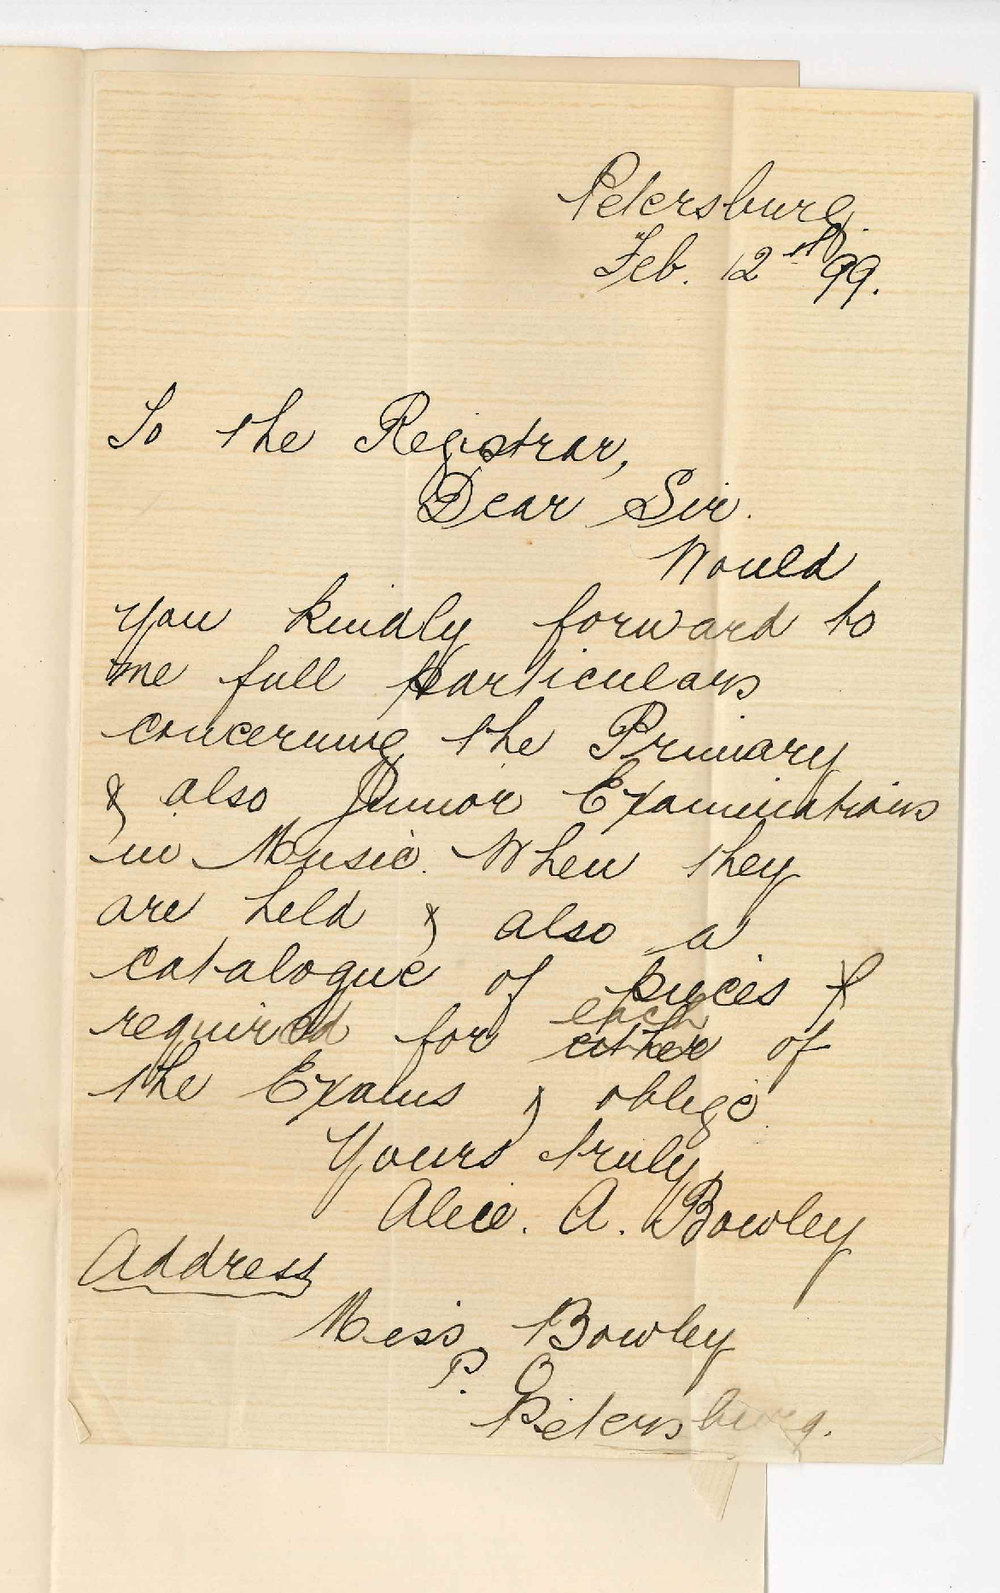 Petersburg.
Feb. 12th 99.
To the Registrar,
Dear Sir.
Would
you kindly forward to
me full particulars
concerning the Primary
& also Junior Examinations
in Music. When they
are held & also a
catalogue of pieces &
required for either each of
the Exams & oblige.
Yours truly,
Alice. A. Bowley
Address
Miss Bowley
P. O
Petersburg.